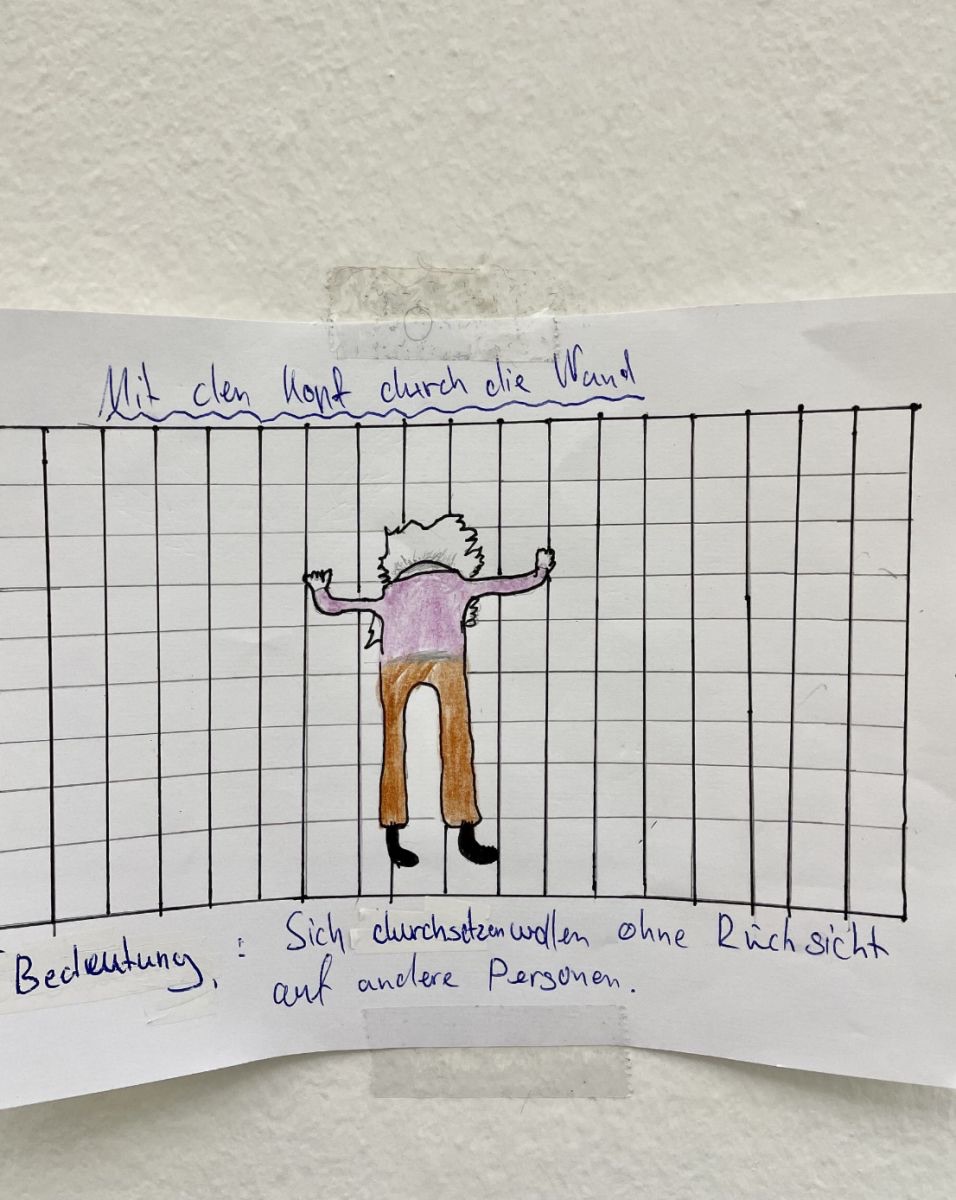 Mit den Kopf durch die Wand
Bedeutung : Sich durchsetzen wollen ohne Rücksicht
auf andere Personen.